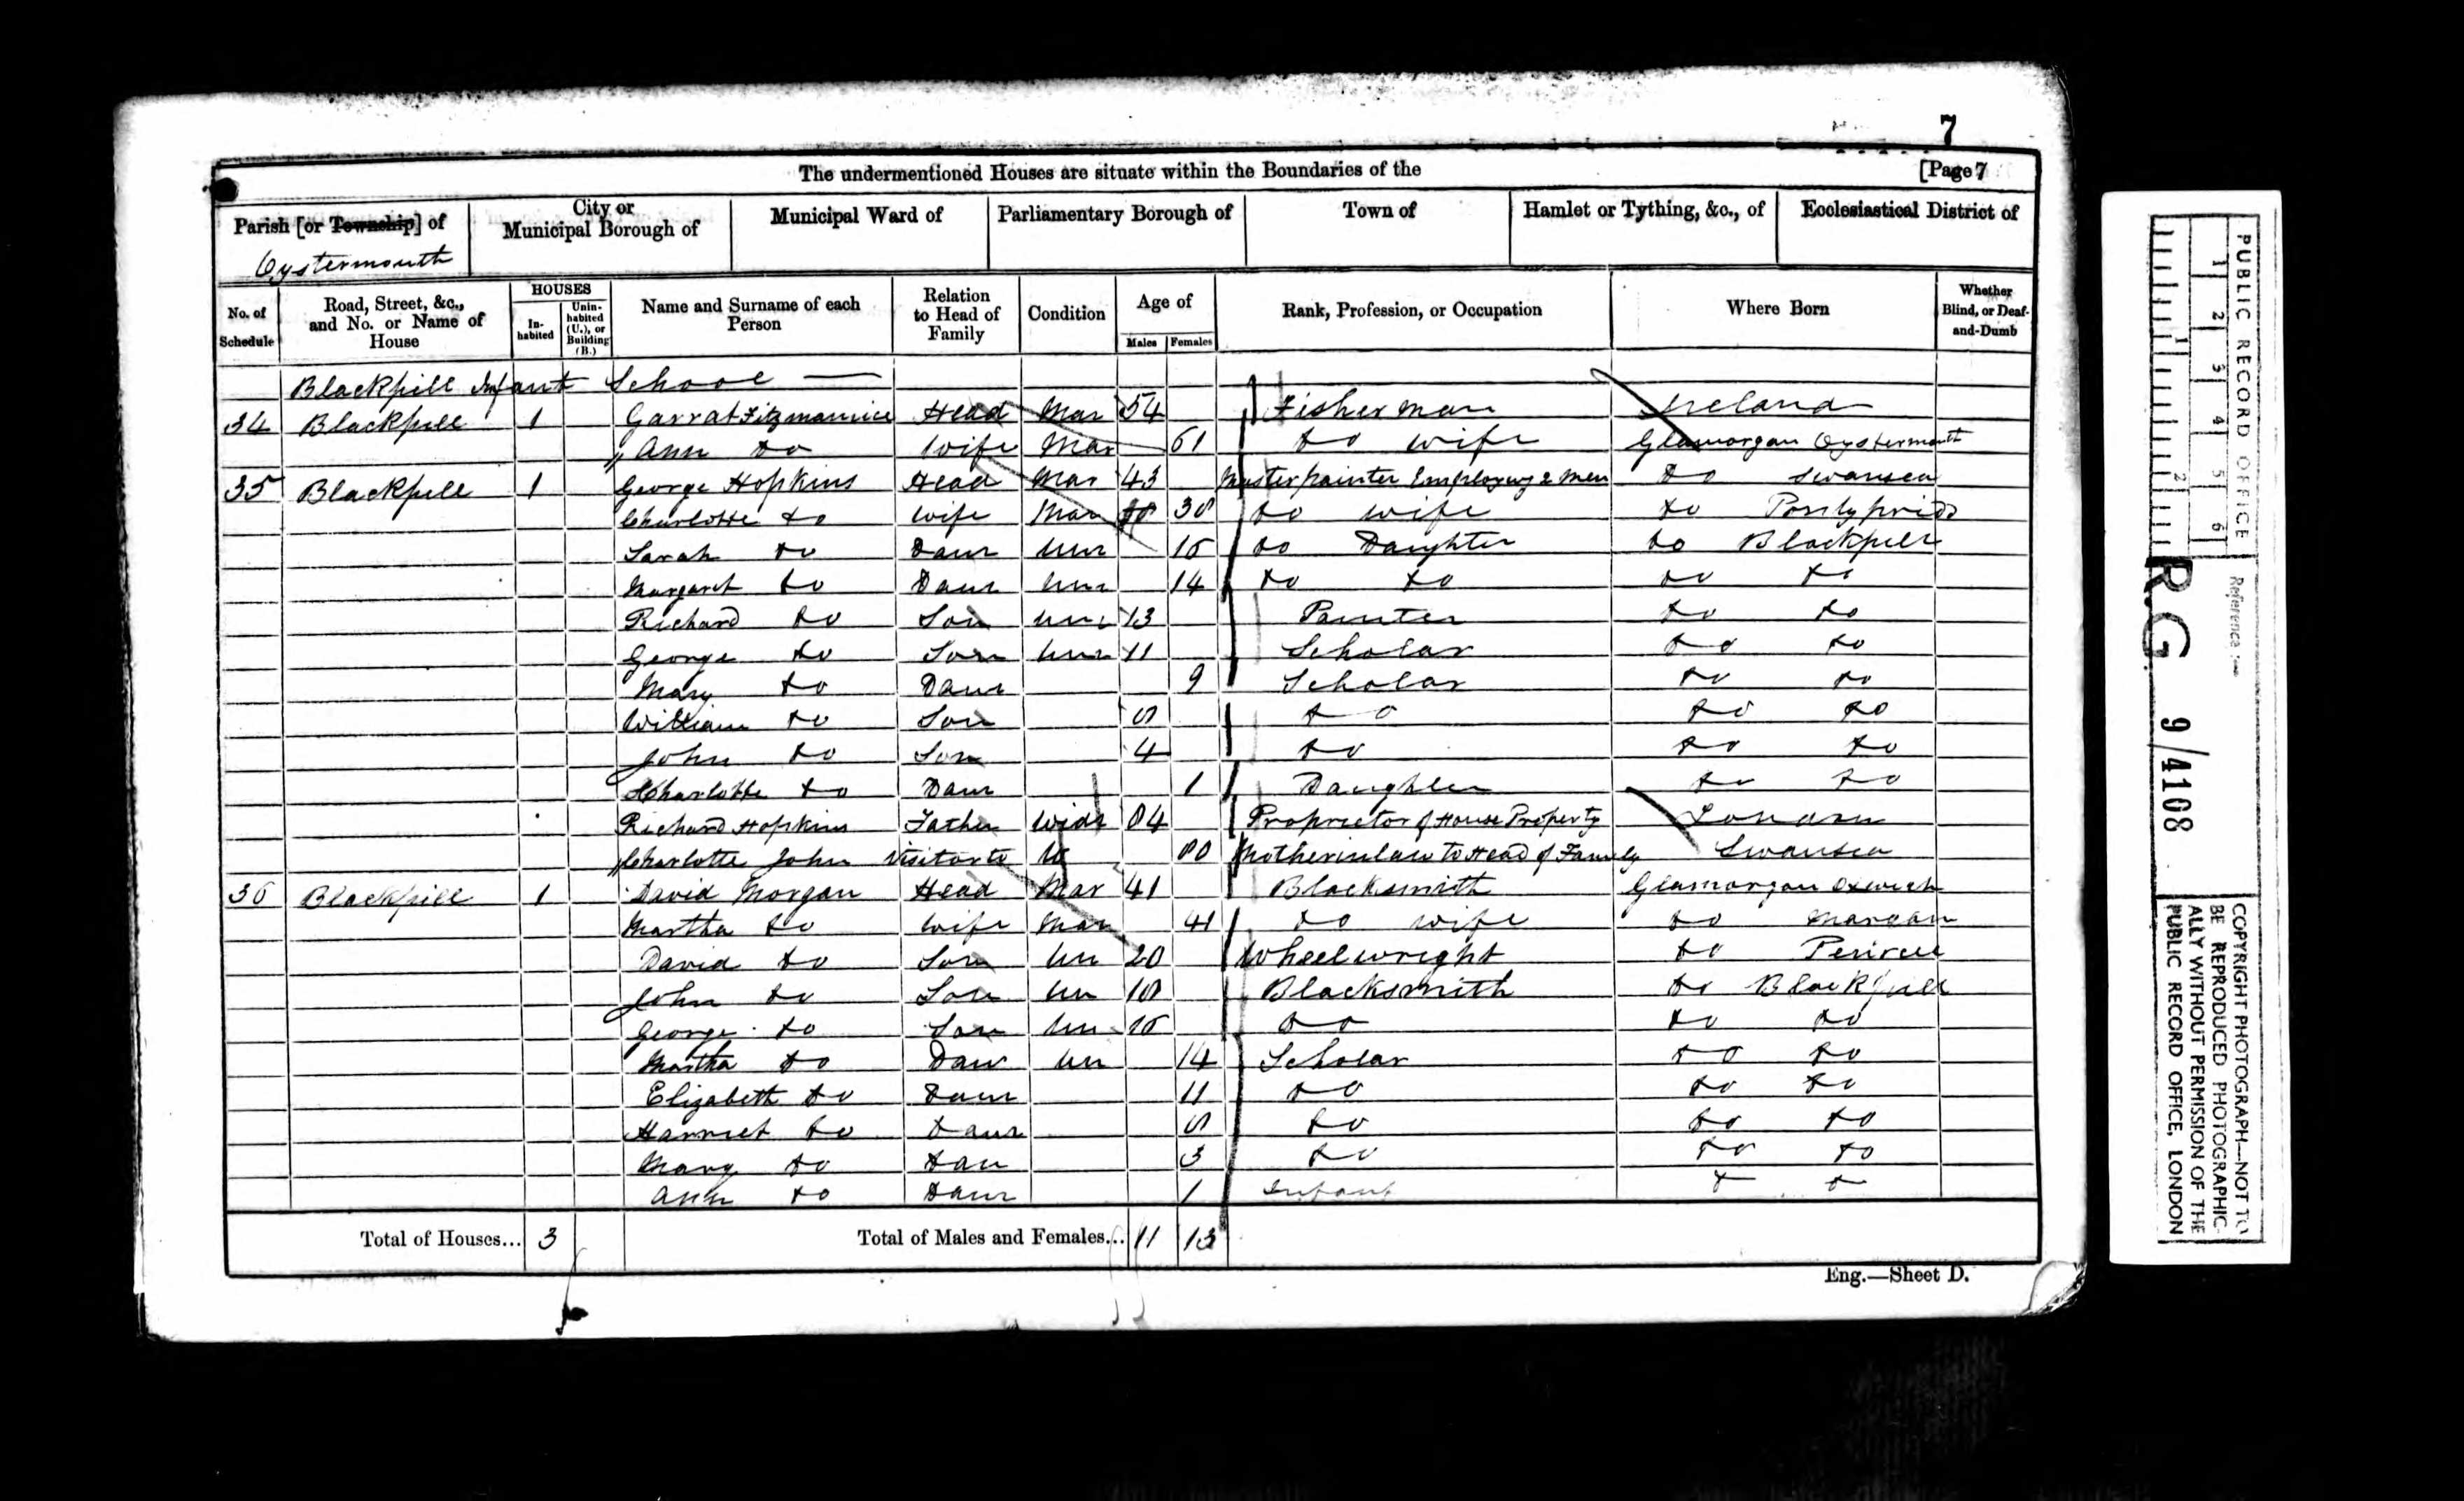 7
The undermentioned Houses are situate within the Boundaries of the [Page 7
Parish [or Township] of City or Municipal Borough of Municipal Ward of Parliamentary Borough of Town of Hamlet or Tything, &c., of Ecclesiastical District of
Oystermouth
No. of Schedule Road, Street, &c., and No. or Name of House HOUSES Inhabited Uninhabited (U.), or Building (B.) Name and Surname of each Person Relation to Head of Family Condition Age of Males Females Rank, Profession, or Occupation Where Born Whether Blind, or Deaf-and-Dumb
Blackpill Infant School
34 Blackpill 1 Garrat Fitzmaurice Head Mar 54 Fisherman Ireland
Ann do Wife Mar 61 do wife Glamorgan Oystermouth
35 Blackpill 1 George Hopkins Head Mar 43 Master painter Employing 2 men do Swansea
Charlotte do Wife Mar 38 do wife do
Sarah do Daur Unr 16 do Daughter do Blackpill
Margaret do Daur Unr 14 do do do do
Richard do Son Unr 13 Painter do do
George do Son Unr 11 Scholar do do
Mary do Daur 9 Scholar do do
William do Son do do do
John do Son 4 do do do
Charlotte do Daur 1 Daughter do do
Richard Hopkins Father Widr 84 Proprietor of House Property London
Charlotte John Visitor to W 80 Mother in law to Head of Family Swansea
36 Blackpill 1 David Morgan Head Mar 41 Blacksmith Glamorgan Oxwich
Martha do Wife Mar 41 do wife do Margam
David do Son Un 20 Wheelwright do
John do Son Un 18 Blacksmith do Blackpill
George do Son Un 16 do do do
Martha do Daur Un 14 Scholar do do
Elizabeth do Daur 11 do do do
Harriet do Daur do do do
Mary do Daur 3 do do do
Ann do Daur 1 Infant
Total of Houses... 3 Total of Males and Females... 11 13
Eng.—Sheet D.
PUBLIC RECORD OFFICE
1 2 3 4 5 6
1 2
Reference :—
R.G. 9/4108
COPYRIGHT PHOTOGRAPH—NOT TO
BE REPRODUCED PHOTOGRAPHIC-
ALLY WITHOUT PERMISSION OF THE
PUBLIC RECORD OFFICE, LONDON